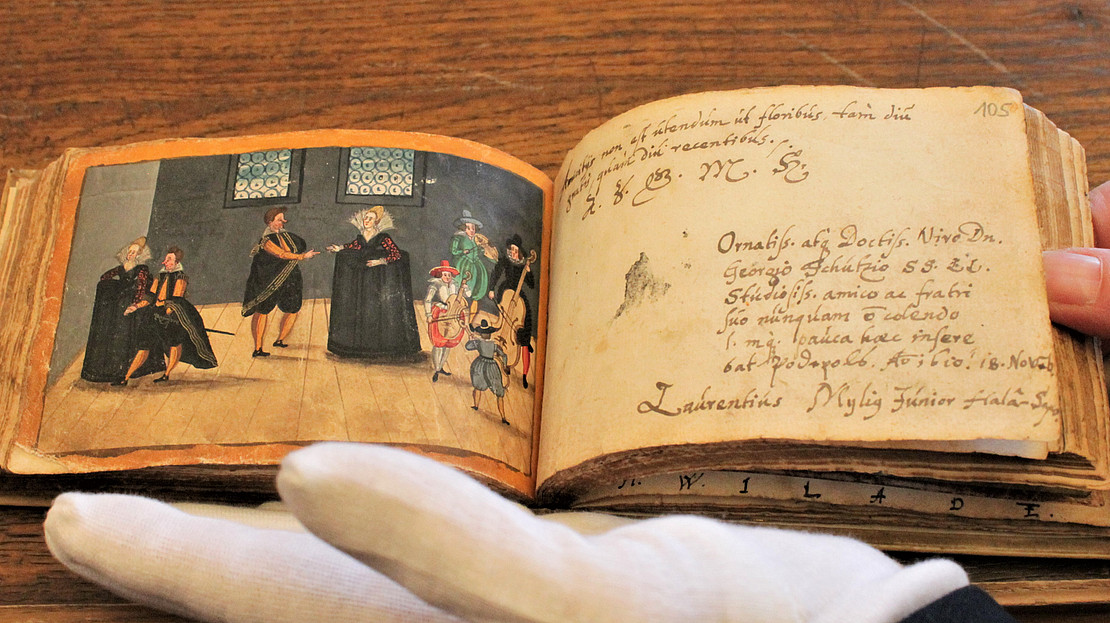 105
non est utendum ut floribus, tam diu
quam diu recentibus.
M.
Ornatiss. atq Doctiss. Viro Dn.
Georgio Schultzio SS. LL.
Studiosiss. amico ac fratri
suo nunquam ō colendo
l. mq. pauca hæc insere
bat 18. Novēb
Laurentius Mylig Junior
W. I L A D E.